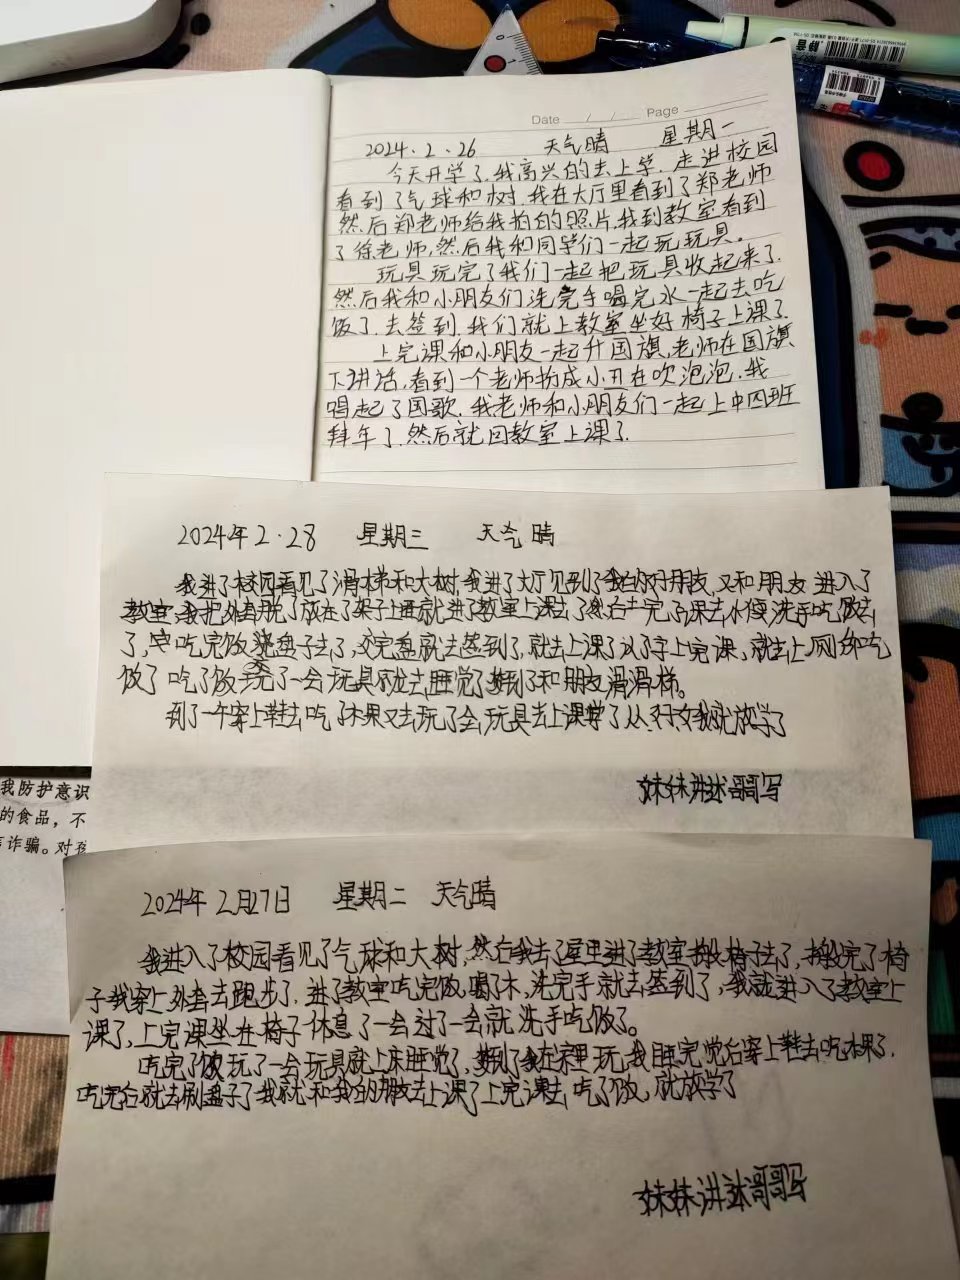 Date / / Page
2024.2.26 天气晴 星期一
今天开学了,我高兴的去上学,走进校园
看到了气球和树,我在大厅里看到了郑老师
然后郑老师给我拍的照片,我到教室看到
了徐老师,然后我和同学们一起玩玩具。
玩具玩完了我们一起把玩具收起来了.
然后我和小朋友们洗完手喝完水一起去吃
饭了.去签到.我们就上教室坐好椅子上课了.
上完课和小朋友一起升国旗,老师在国旗
下讲话,看到一个老师扮成小丑在吹泡泡.我
唱起了国歌.我老师和小朋友们一起上中四班
拜年了.然后就回教室上课了.
2024年2.28 星期三 天气晴
我进了校园看见了滑梯和大树,我进了大厅见到了我的好朋友,又和朋友进入了
教室,我把外套脱了放在了架子上面就进了教室上课去了然后上完了课去水
了,吃完饭盘子去了,交完盘就去签到了,就去上课了认了字上完课,就去上厕所吃
饭了吃了饭玩了一会玩具就去睡觉了梦到了和朋友滑滑梯。
到了下午穿上鞋去吃了水果又去玩了会玩具去上课学了从我就放学了
妹妹讲述哥哥写
我防护意识
的食品,不
诈骗。对孩
2024年2月27日 星期二 天气晴
我进入了校园看见了气球和大树,然后我去了屋里进了教室搬椅子去了,搬完了椅
子我穿上外套去跑步了.进了教室吃完饭,喝了水,洗完手就去签到了,我就进入了教室上
课了,上完课坐在椅子休息了一会过了一会就洗手吃饭了。
吃完了饭玩了一会玩具就上床睡觉了,梦到了我在家里玩,我睡完觉后穿上鞋去吃水果了.
吃完后就去刷盘子了我就和我的朋友去上课了上完课去吃了饭,就放学了
妹妹讲述哥哥写